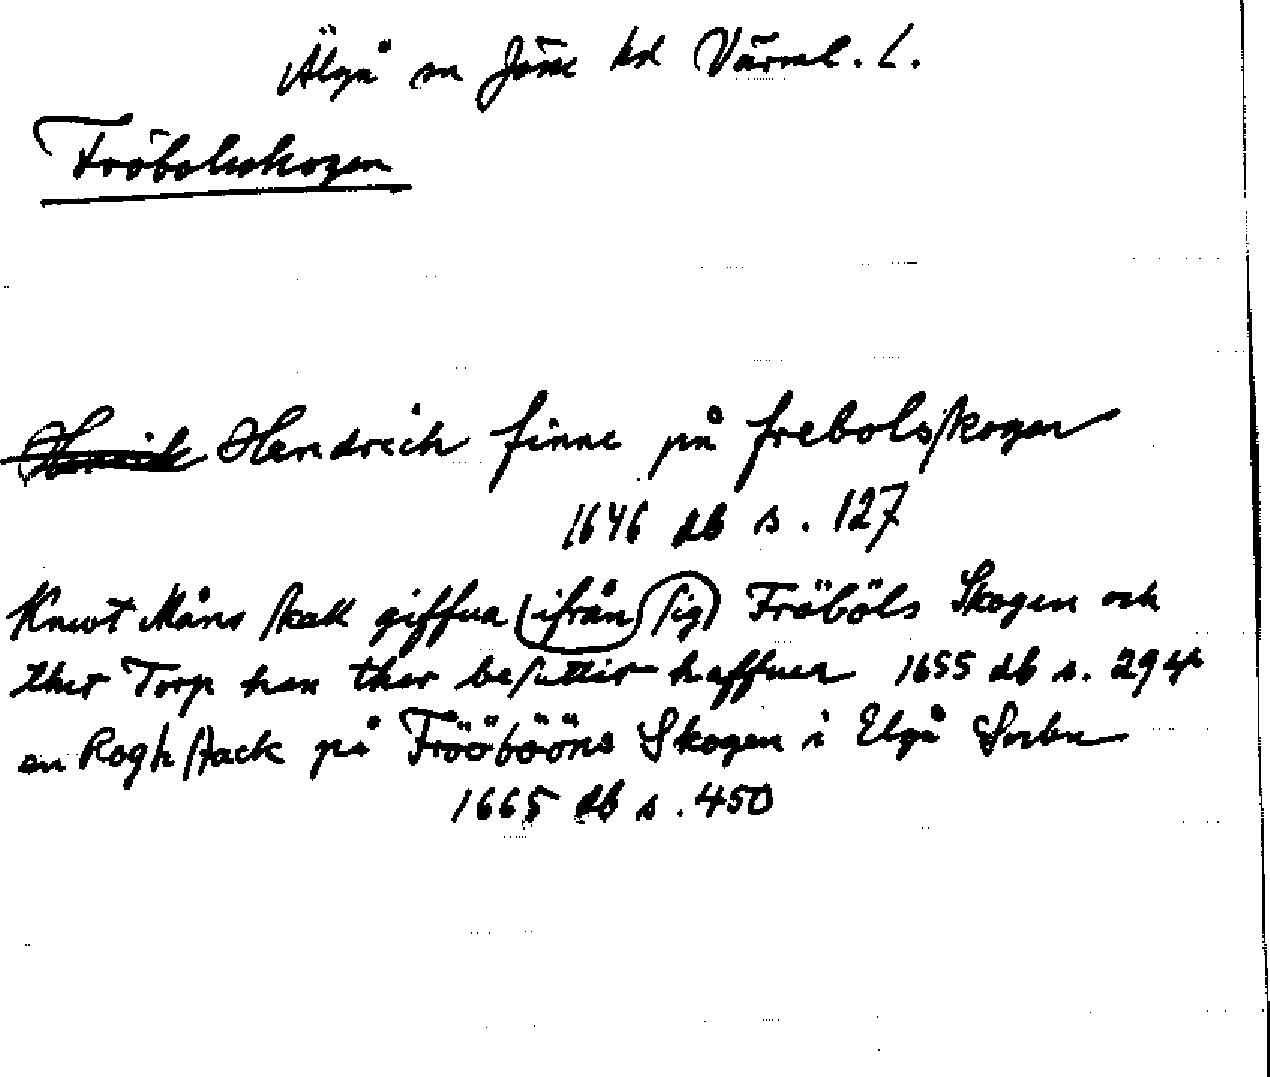 Älgå sn Jösse hd Värml. L.
Fröbolsskogen
Henrik Hendrich finne på frebolsskogen
1646 db s. 127
Knut Måns skall giffua ifrån sig Fröböls Skogen och
ther Torp han ther besuttit haffuer 1655 db s. 294
en Rogh stack på Frööbööns Skogen i Elgå Sochn
1665 db s. 450